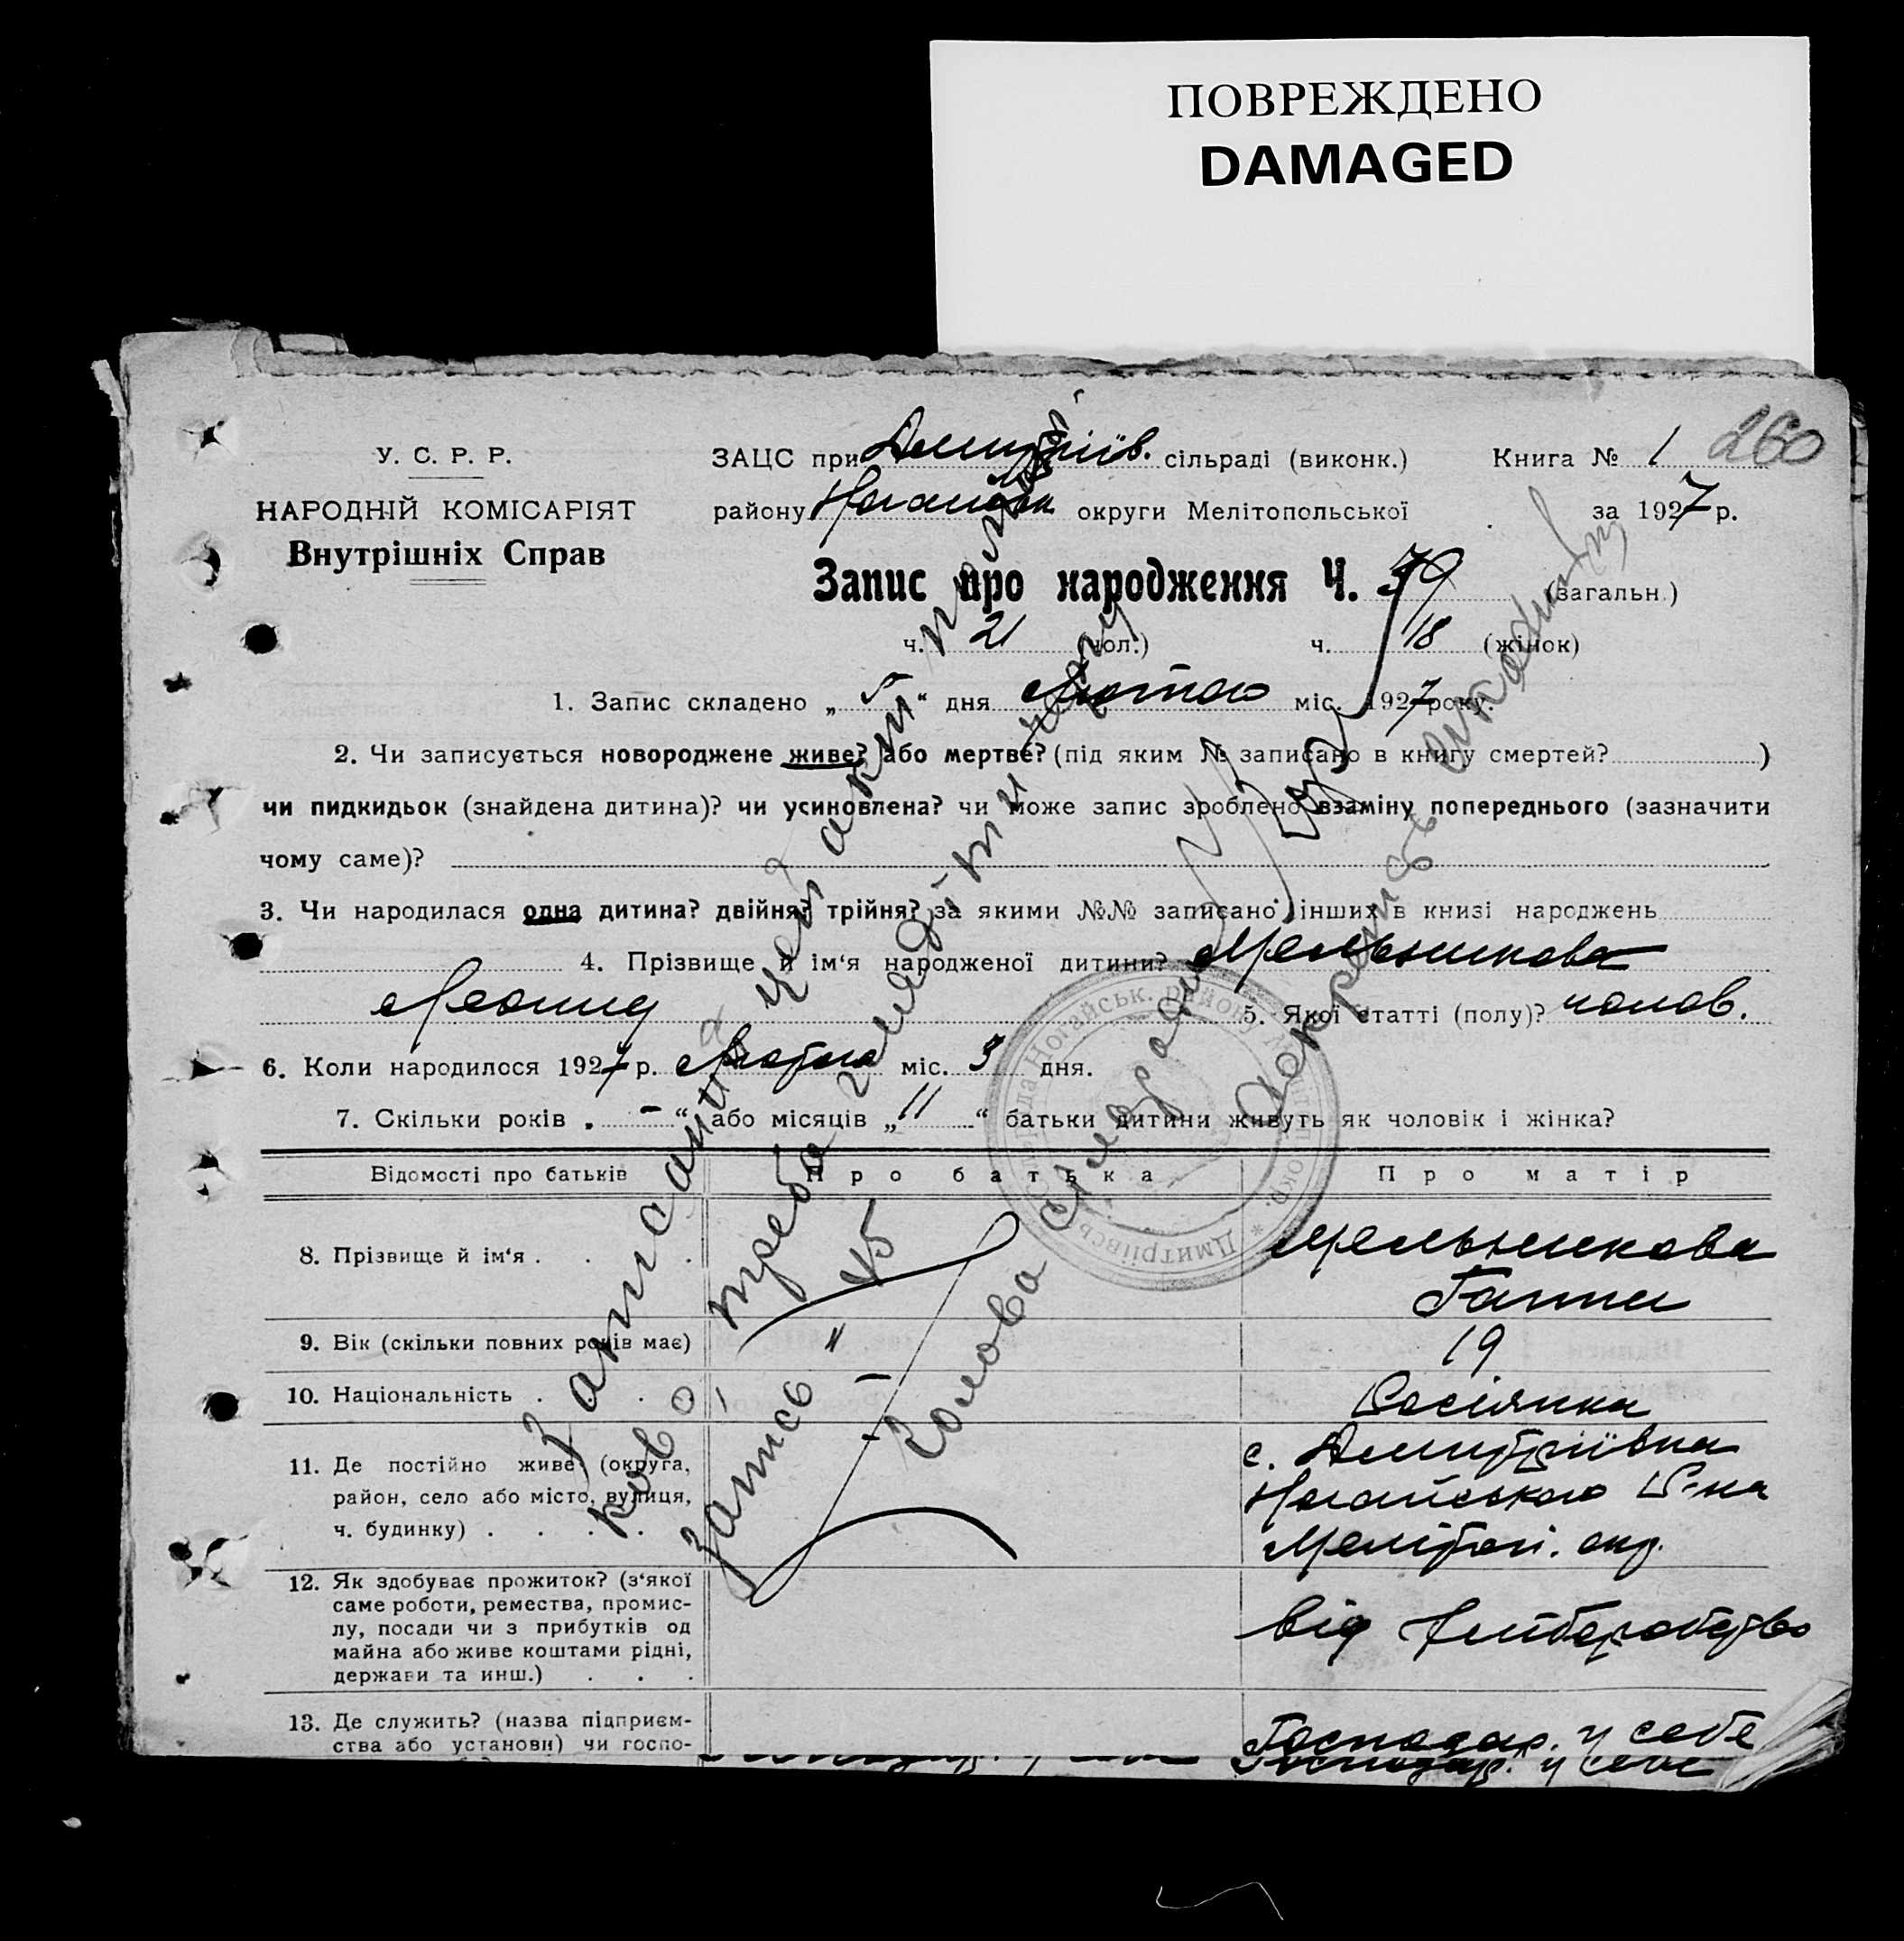 ПОВРЕЖДЕНО
DAMAGED
260
У. С. Р. Р.
НАРОДНІЙ КОМІСАРІЯТ
Внутрішніх Справ
ЗАЦС при Дмитріїв. сільраді (виконк.) Книга № 1
району Ногайськ округи Мелітопольської за 1927 р.
Запис про народження Ч. 39 (загальн.)
ч. 21 (чол.) ч. 18 (жінок)
1. Запис складено „ 5 “ дня Лютого міс. 1927 року.
2. Чи записується новороджене живе? або мертве? (під яким № записано в книгу смертей? )
чи пидкидьок (знайдена дитина)? чи усиновлена? чи може запис зроблено взаміну попереднього (зазначити
чому саме)?
3. Чи народилася одна дитина? двійня? трійня? за якими №№ записано інших в книзі народжень
4. Прізвище й ім‘я народженої дитини? Мельникова
Леонид 5. Якої статті (полу)? чолов.
6. Коли народилося 1927 р. Лютого міс. 3 дня.
7. Скільки років „ – “ або місяців „ 11 “ батьки дитини живуть як чоловік і жінка?
Відомості про батьків Про батька Про матір
8. Прізвище й ім‘я . . . Мельникова
Ганна
9. Вік (скільки повних років має) " 19
10. Національність . . . – Росіянка
11. Де постійно живе (округа,
район, село або місто, вулиця,
ч. будинку) . . . .
с. Дмитріївка
Ногайського Р-на
Мелітоп. окр.
12. Як здобуває прожиток? (з‘якої
саме роботи, ремества, промис-
лу, посади чи з прибутків од
майна або живе коштами рідні,
держави та инш.) . . .
від хліборобство
13. Де служить? (назва підприєм-
ства або установи) чи госпо-
Господар. у себе
Господар. у себе
Записаний цей акт
треба
запись 45
Голова сільради
Ногайськ. району Мелітоп. окр. * Дмитріївсь